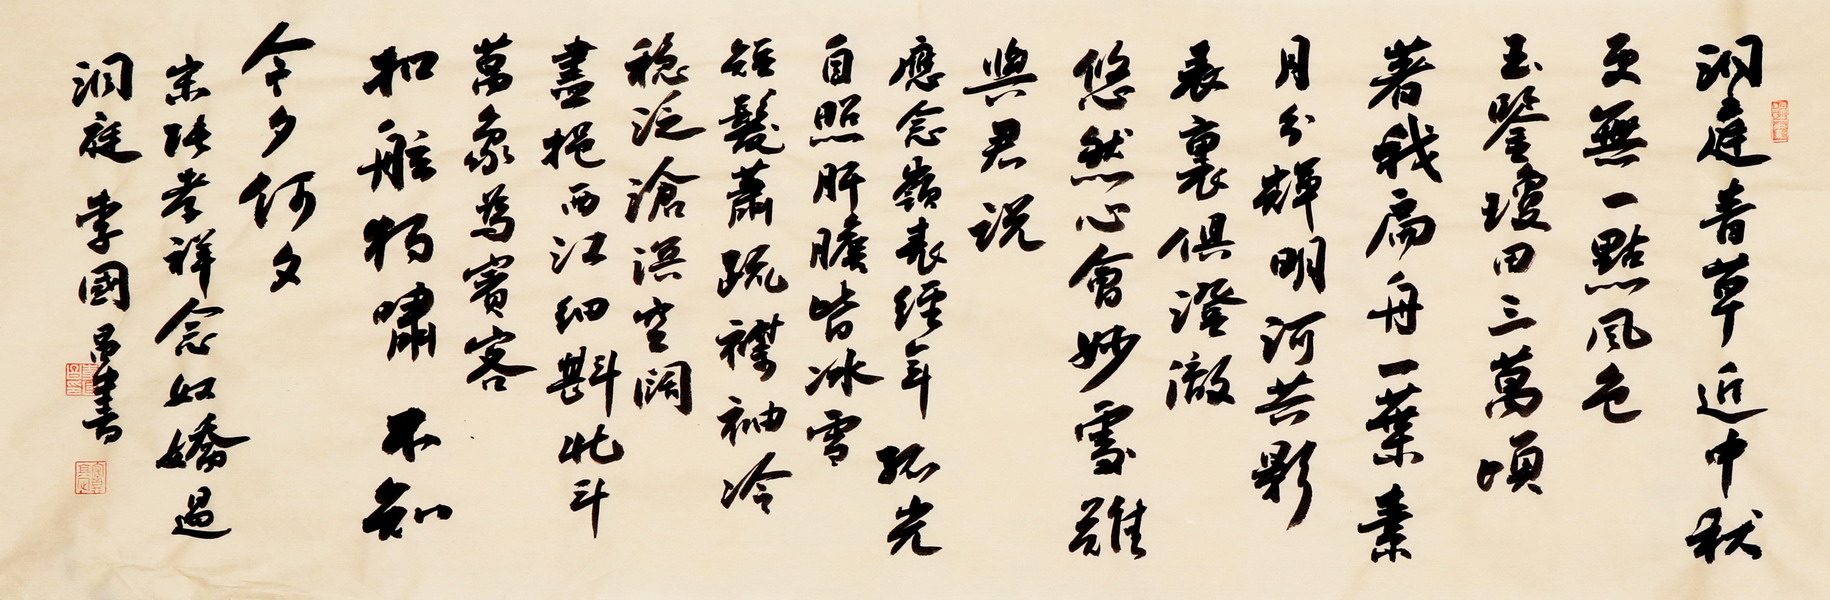 洞庭青草近中秋
更無一點風色
玉鑒瓊田三萬頃
著我扁舟一葉素
月分輝明河共影
表裏俱澄澈
悠然心會妙處難
與君説
應念嶺表經年孤光
自照肝膽皆冰雪
短髮蕭疏襟袖冷
穩泛滄溟空闊
盡挹西江細斟北斗
萬象為賓客
扣舷獨嘯不知
今夕何夕
宋張孝祥念奴嬌過
洞庭 李國昌書